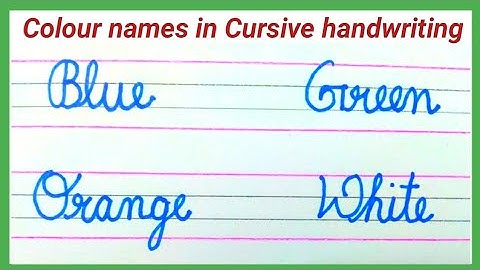 Colour names in Cursive handwriting
Blue Green
Orange White